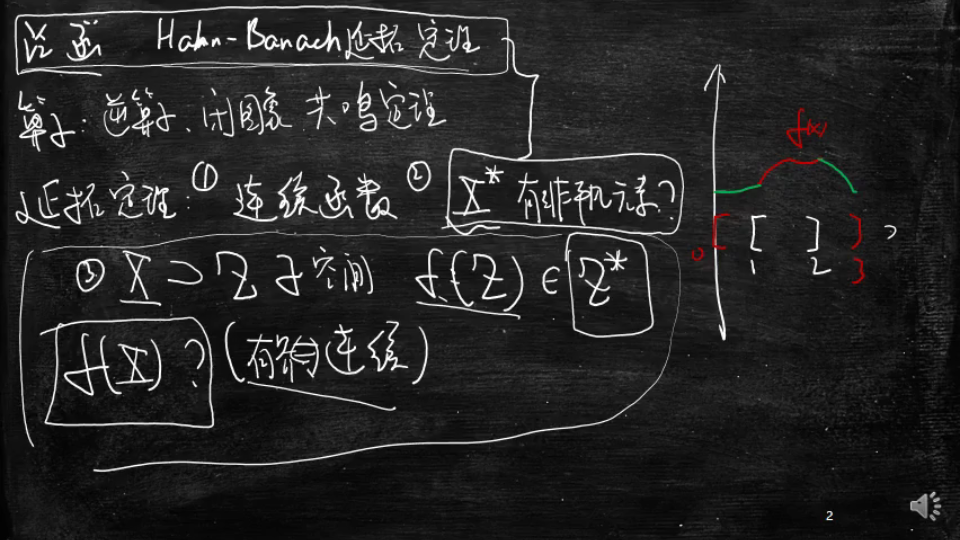 泛函 Hahn-Banach延拓定理
算子: 逆算子、闭图象 共鸣定理
延拓定理: ① 连续函数 ② X* 有非平凡元素?
③ X ⊃ Z 子空间 f(Z) ∈ Z*
f(X) ? (有界连续)
f(x)
[ [ ] )
0 1 2 3
2